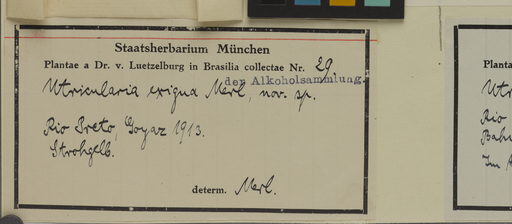 Staatsherbarium München
Plantae a Dr. v. Luetzelburg in Brasilia collectae Nr. 29.
der Alkoholsammlung.
Utricularia exigua Merl, nov. sp.
Rio Preto, Goyaz 1913.
Strohgelb.
determ. Merl.
Planta
Utr
Rio
Bahi
Im